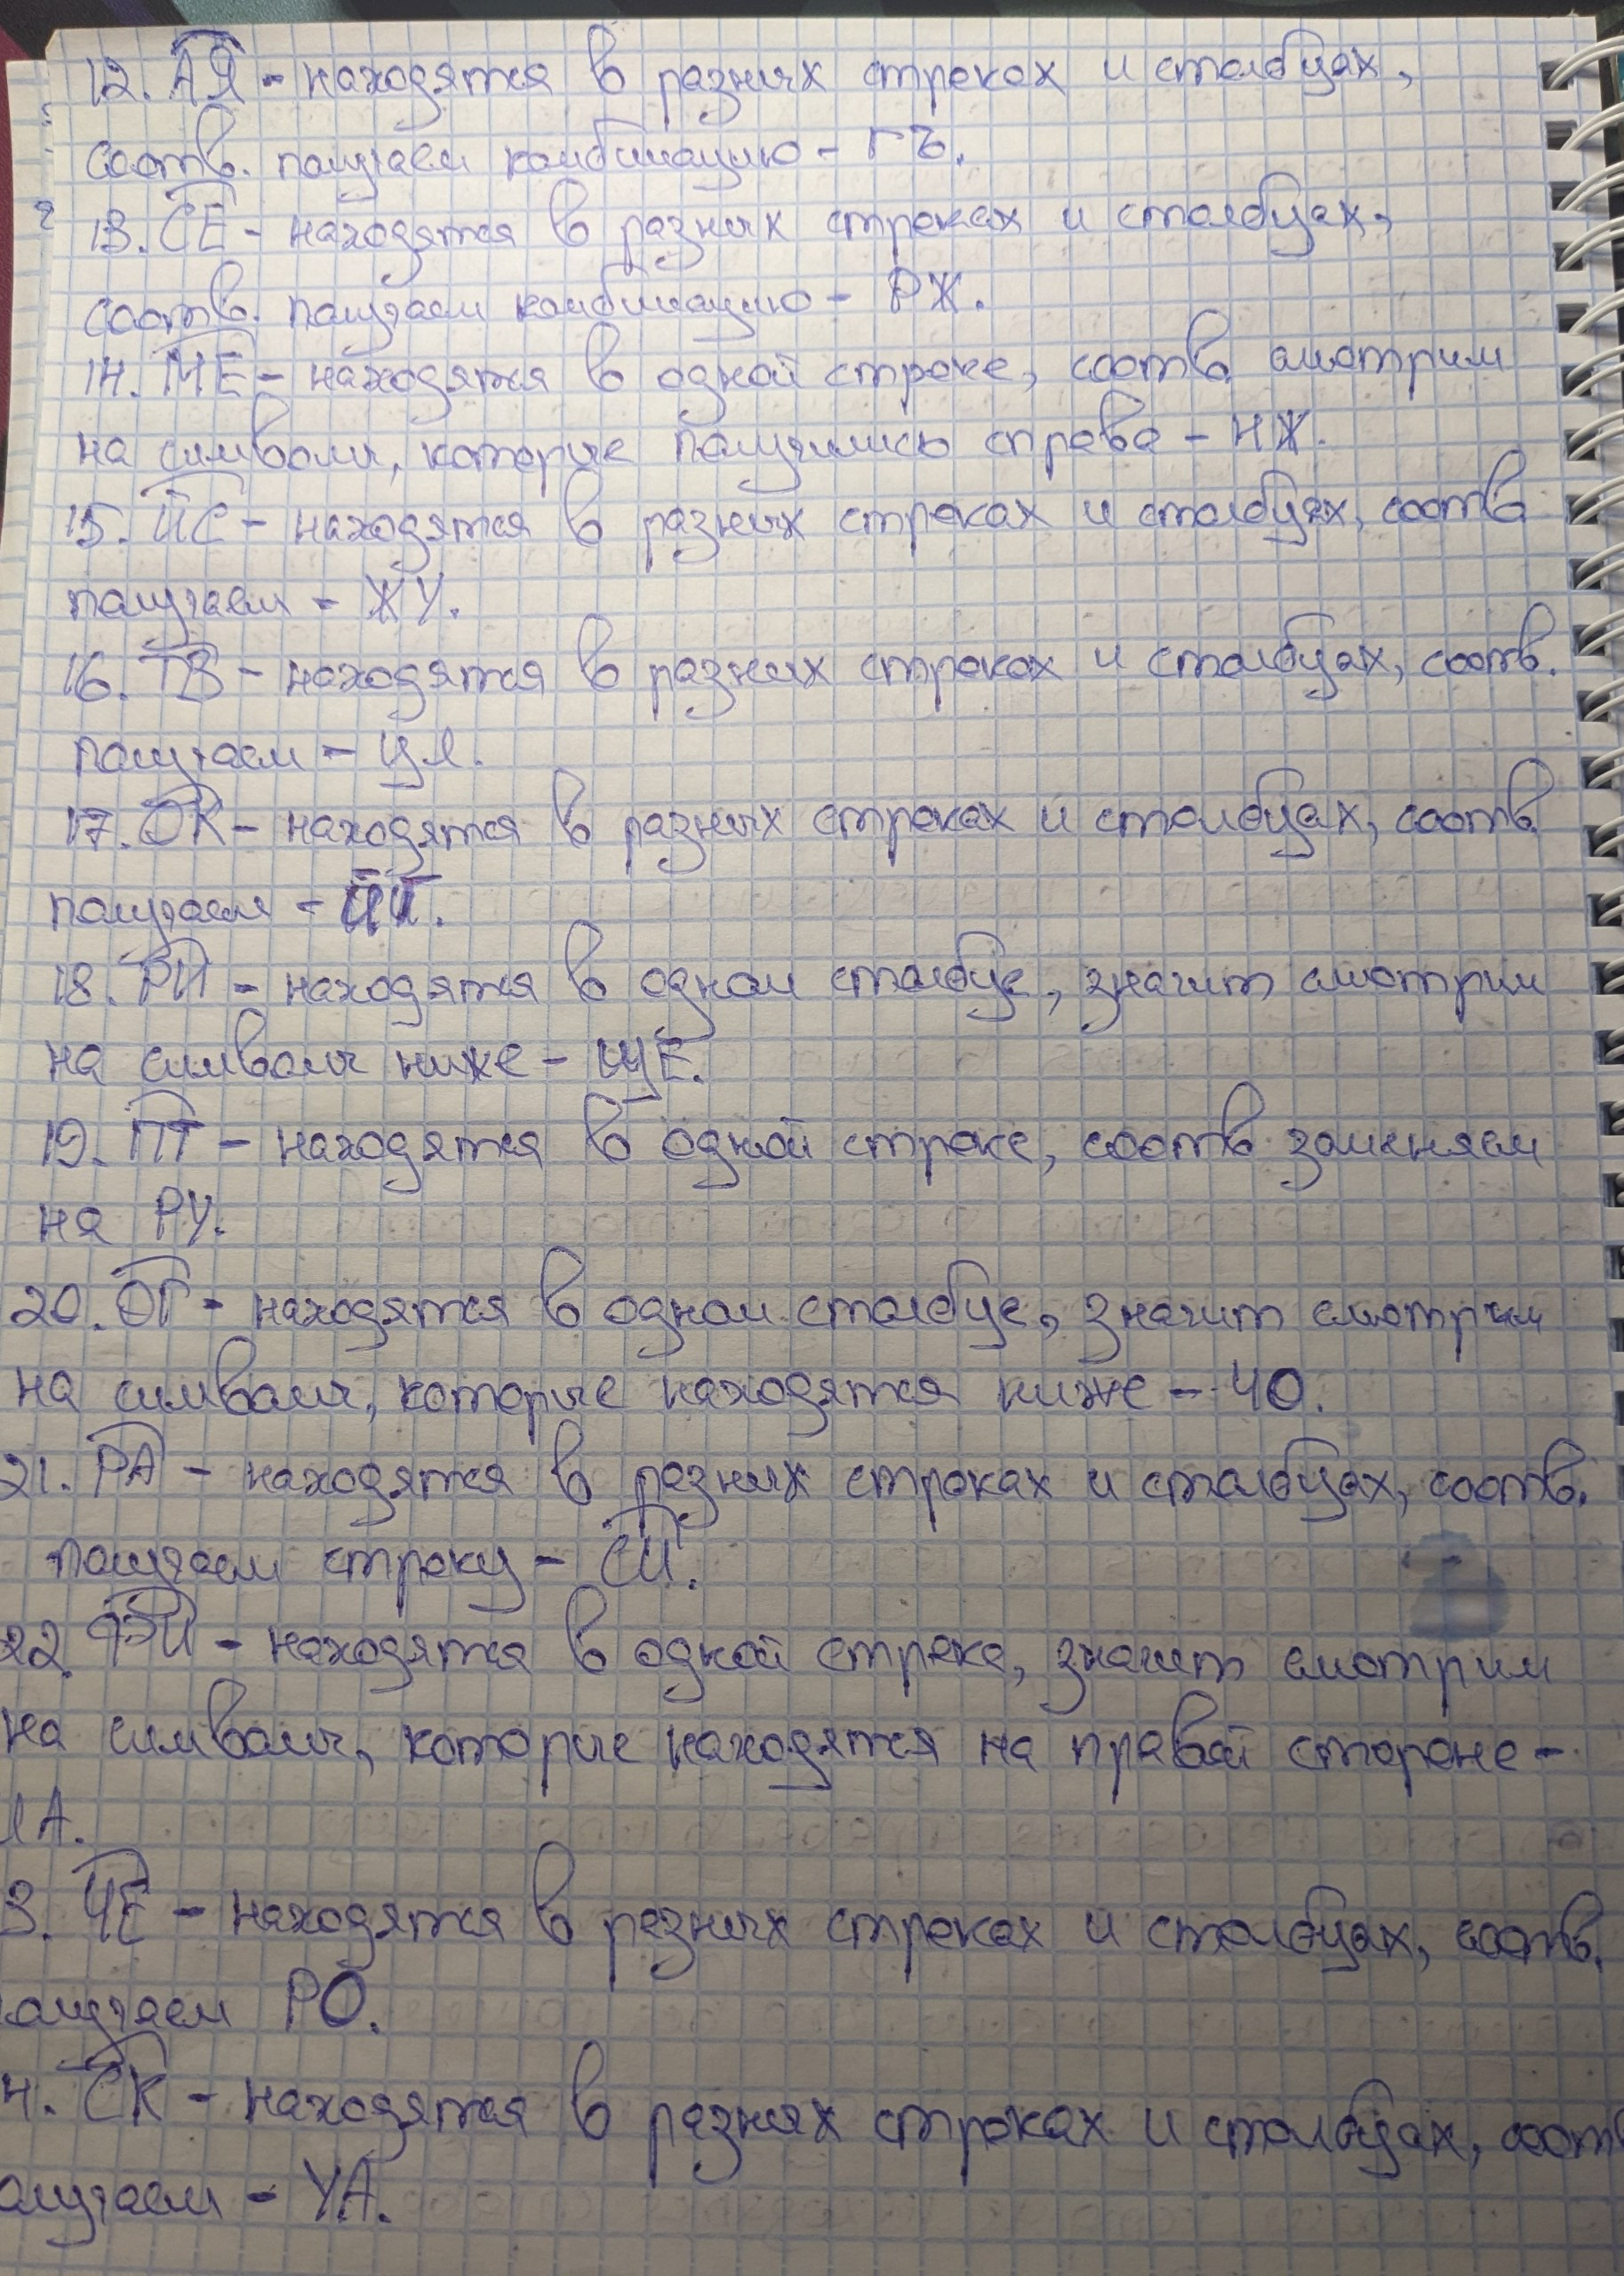 12. АЯ - находятся в разных строках и столбцах,
соотв. получаем комбинацию - ГЪ.
13. СЕ - находятся в разных строках и столбцах,
соотв. получаем комбинацию - РЖ.
14. МЕ - находятся в одной строке, соотв. смотрим
на символы, которые получились справа - НЖ.
15. ЙС - находятся в разных строках и столбцах, соотв
получаем - ЖУ.
16. ТВ - находятся в разных строках и столбцах, соотв.
получаем - ЦЛ.
17. ОК - находятся в разных строках и столбцах, соотв.
получаем -
18. РИ - находятся в одном столбце, значит смотрим
на символы ниже - ЩЕ.
19. ПТ - находятся в одной строке, соотв заменяем
на РУ.
20. ОГ - находятся в одном столбце, значит смотрим
на символы, которые находятся ниже - ЧО.
21. РА - находятся в разных строках и столбцах, соотв.
получаем строку - СИ.
22. ФИ - находятся в одной строке, значит смотрим
на символы, которые находятся на правой стороне -
А.
3. ЧЕ - находятся в разных строках и столбцах, соотв.
олучаем РО.
4. СК - находятся в разных строках и столбцах, соотв
олучаем - УА.